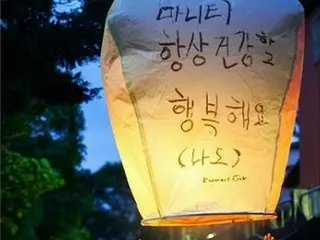 마니티
항상 건강하고
행복해요
(나도)